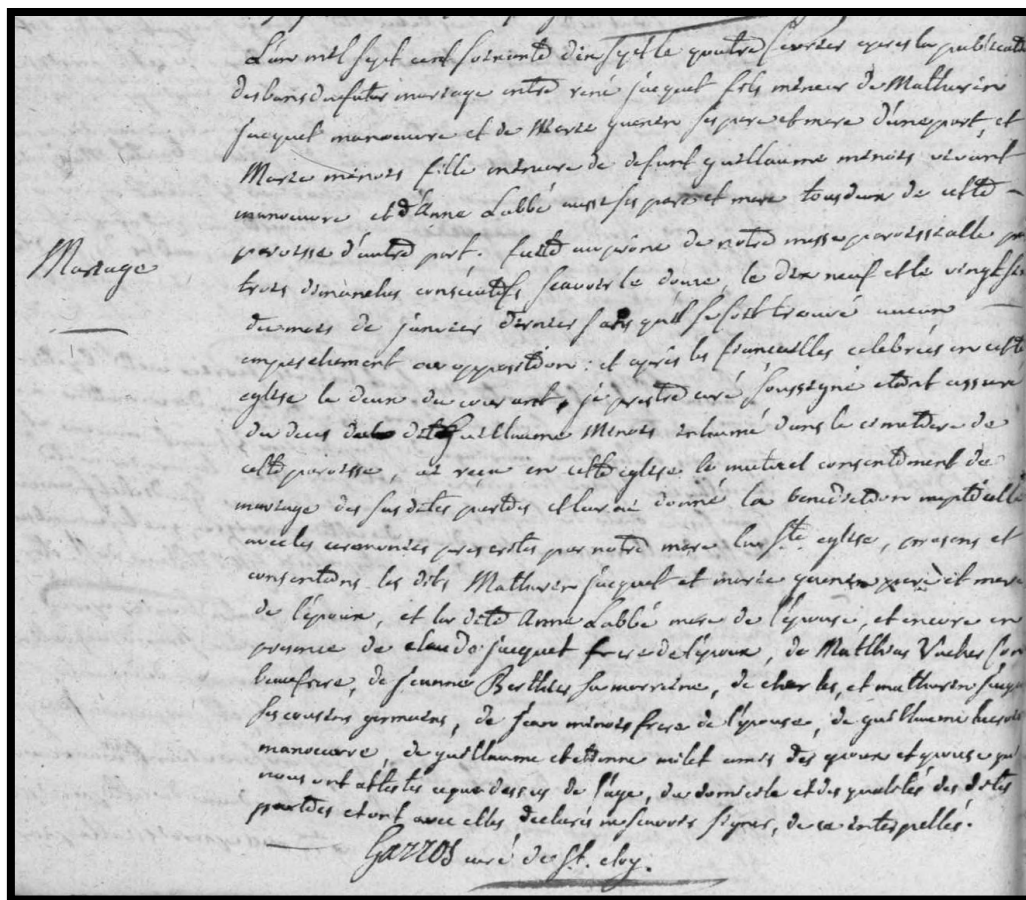 L'an mil sept cent soixante dix sept le quatre fevrier apres la publication
des bans du futur mariage entre réné jacquet fils mineur de Mathurin
jacquet manoeuvre et de Marie quenin ses pere et mere d'une part, et
Marie minois fille mineure de defunt guillaume minois vivant
manoeuvre et d'Anne Labbé aussi ses pere et mere tous deux de cette
paroisse d'autre part. faitte au prône de notre messe paroissialle par
Mariage
trois dimanches consécutifs scavoir le douze, le dix neuf et le vingt six
du mois de janvier dernier sans qu'il se soit trouvé aucun
empeschement ou opposition : et après les fiancailles célébrées en cette
eglise le deux du courant, je prestre curé soussigné etant assuré
du deces du dit Guillaume Minois inhumé dans le cimetiere de
cette paroisse, ai recu en cette eglise le mutuel consentement de
mariage des susdites parties et leur ai donné la bénédiction nuptialle
avec les ceremonies prescrites par notre mere la Ste. eglise, presens et
consentans les dits Mathurin jacquet et marie quenin pere et mere
de l'époux, et la dite Anne Labbé mere de l'épouse, et encore en
presence de claude jacquet frere de l'époux, de Matthias Vacher son
beaufrere, de jeanne Berthier sa marraine, de charles, et mathurin jacquet
ses cousins germains, de jean minois frere de l'épouse, de guillaume
manoeuvre, de guillaume et etienne milet amis des epoux et epouse qui
nous ont attestés ce que dessus de l'age, du domicile et des qualités des dites
parties et ont avec elles declarés ne scavoir signer, de ce interpellés.
Garros curé de St. eloy.